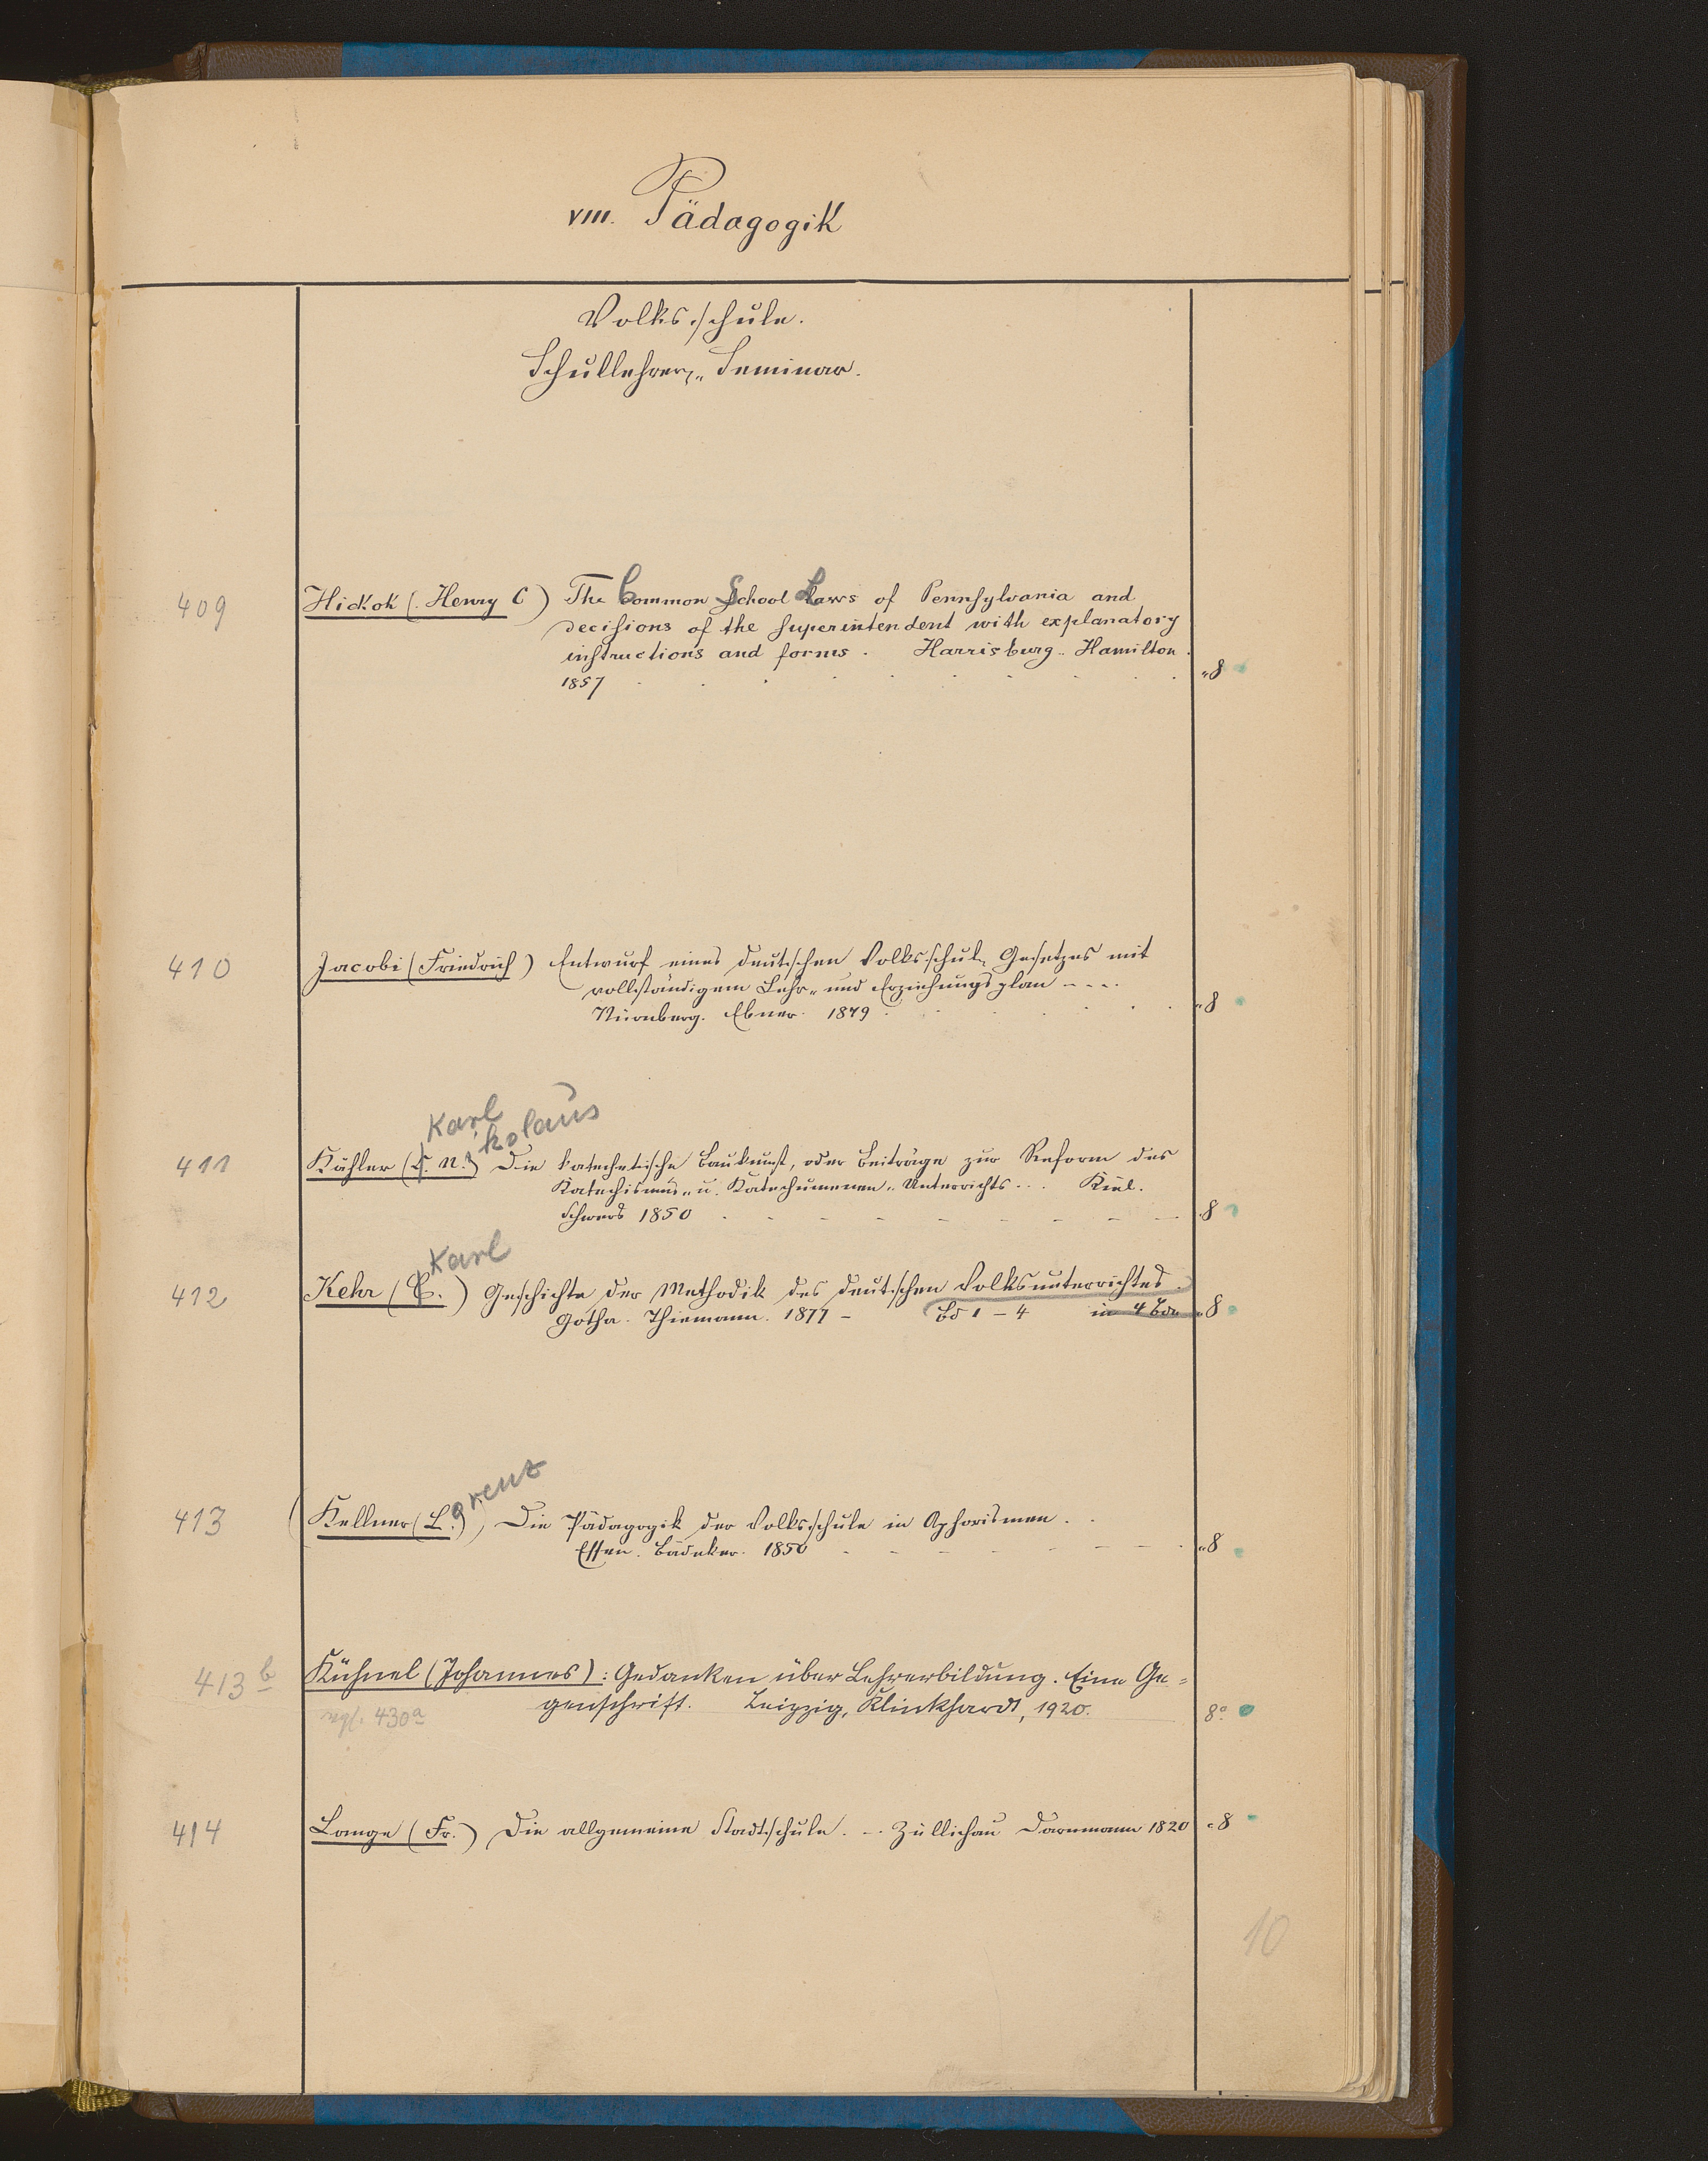 VIII. Pädagogik
Volksschule.
Schullehrer-Seminar.
409 Hickok (Henry C) The Common School Laws of Pennsylvania and
decisions of the superintendent with explanatory
instructions and forms. Harrisburg. Hamilton.
1857 8
410 Jacobi (Friedrich) Entwurf eines deutschen Volksschul-Gesetzes mit
vollständigem Lehr- und Erziehungsplan ....
Nürnberg. Ebner. 1879 8
Karl ikolaus
411 Kähler (C. N.) Die katechetische Baukunst, oder Beiträge zur Reform des
Katechismus- u. Katechumenen-Unterrichts... Kiel.
Schwers 1850 8
Karl
412 Kehr (C.) Geschichte der Methodik des deutschen Volksunterrichtes.
Gotha. Thienemann. 1877 - Bd 1-4 in 4 Bdn 8
orenz
413 Kellner (L.), Die Pädagogik der Volksschule in Aphorismen. .
Essen. Bädeker. 1850 8
413b Kühnel (Johannes): Gedanken über Lehrerbildung. Eine Ge-
vgl. 430a genschrift. Leipzig, Klinkhardt, 1920. 8°
414 Lange (Fr.) Die allgemeine Stadtschule. .. Züllichau Darnmann 1820 8
10